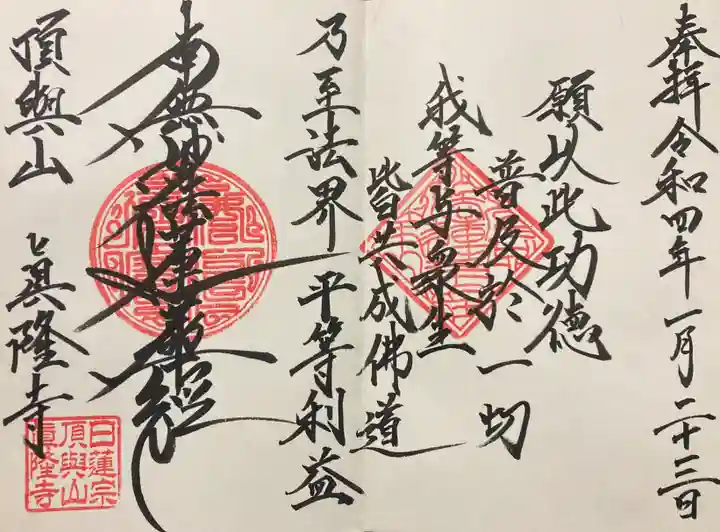 奉拝 令和四年一月二十三日
願以此功徳
普及於一切
我等与衆生
皆共成佛道
乃至法界 平等利益
南無妙法蓮華経
頂與山 真隆寺
日蓮宗
頂與山
眞隆寺